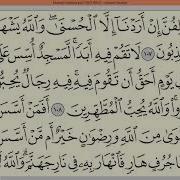 لِفُنَّ إِنْ أَرَدْنَا إِلَّا الْحُسْنَىٰ وَاللَّهُ يَشْهَ
ذِبُونَ ١٠٧ لَا تَقُمْ فِيهِ أَبَدًا لَّمَسْجِدٌ أُسِّسَ عَلَ
يَوْمٍ أَحَقُّ أَن تَقُومَ فِيهِ فِيهِ رِجَالٌ يُحِبُّو
وا وَاللَّهُ يُحِبُّ الْمُطَّهِّرِينَ ١٠٨ أَفَمَنْ أَسَّسَ
وَىٰ مِنَ اللَّهِ وَرِضْوَانٍ خَيْرٌ أَم مَّنْ أَسَّسَ
ا جُرُفٍ هَارٍ فَانْهَارَ بِهِ فِي نَارِ جَهَنَّمَ وَاللَّهُ